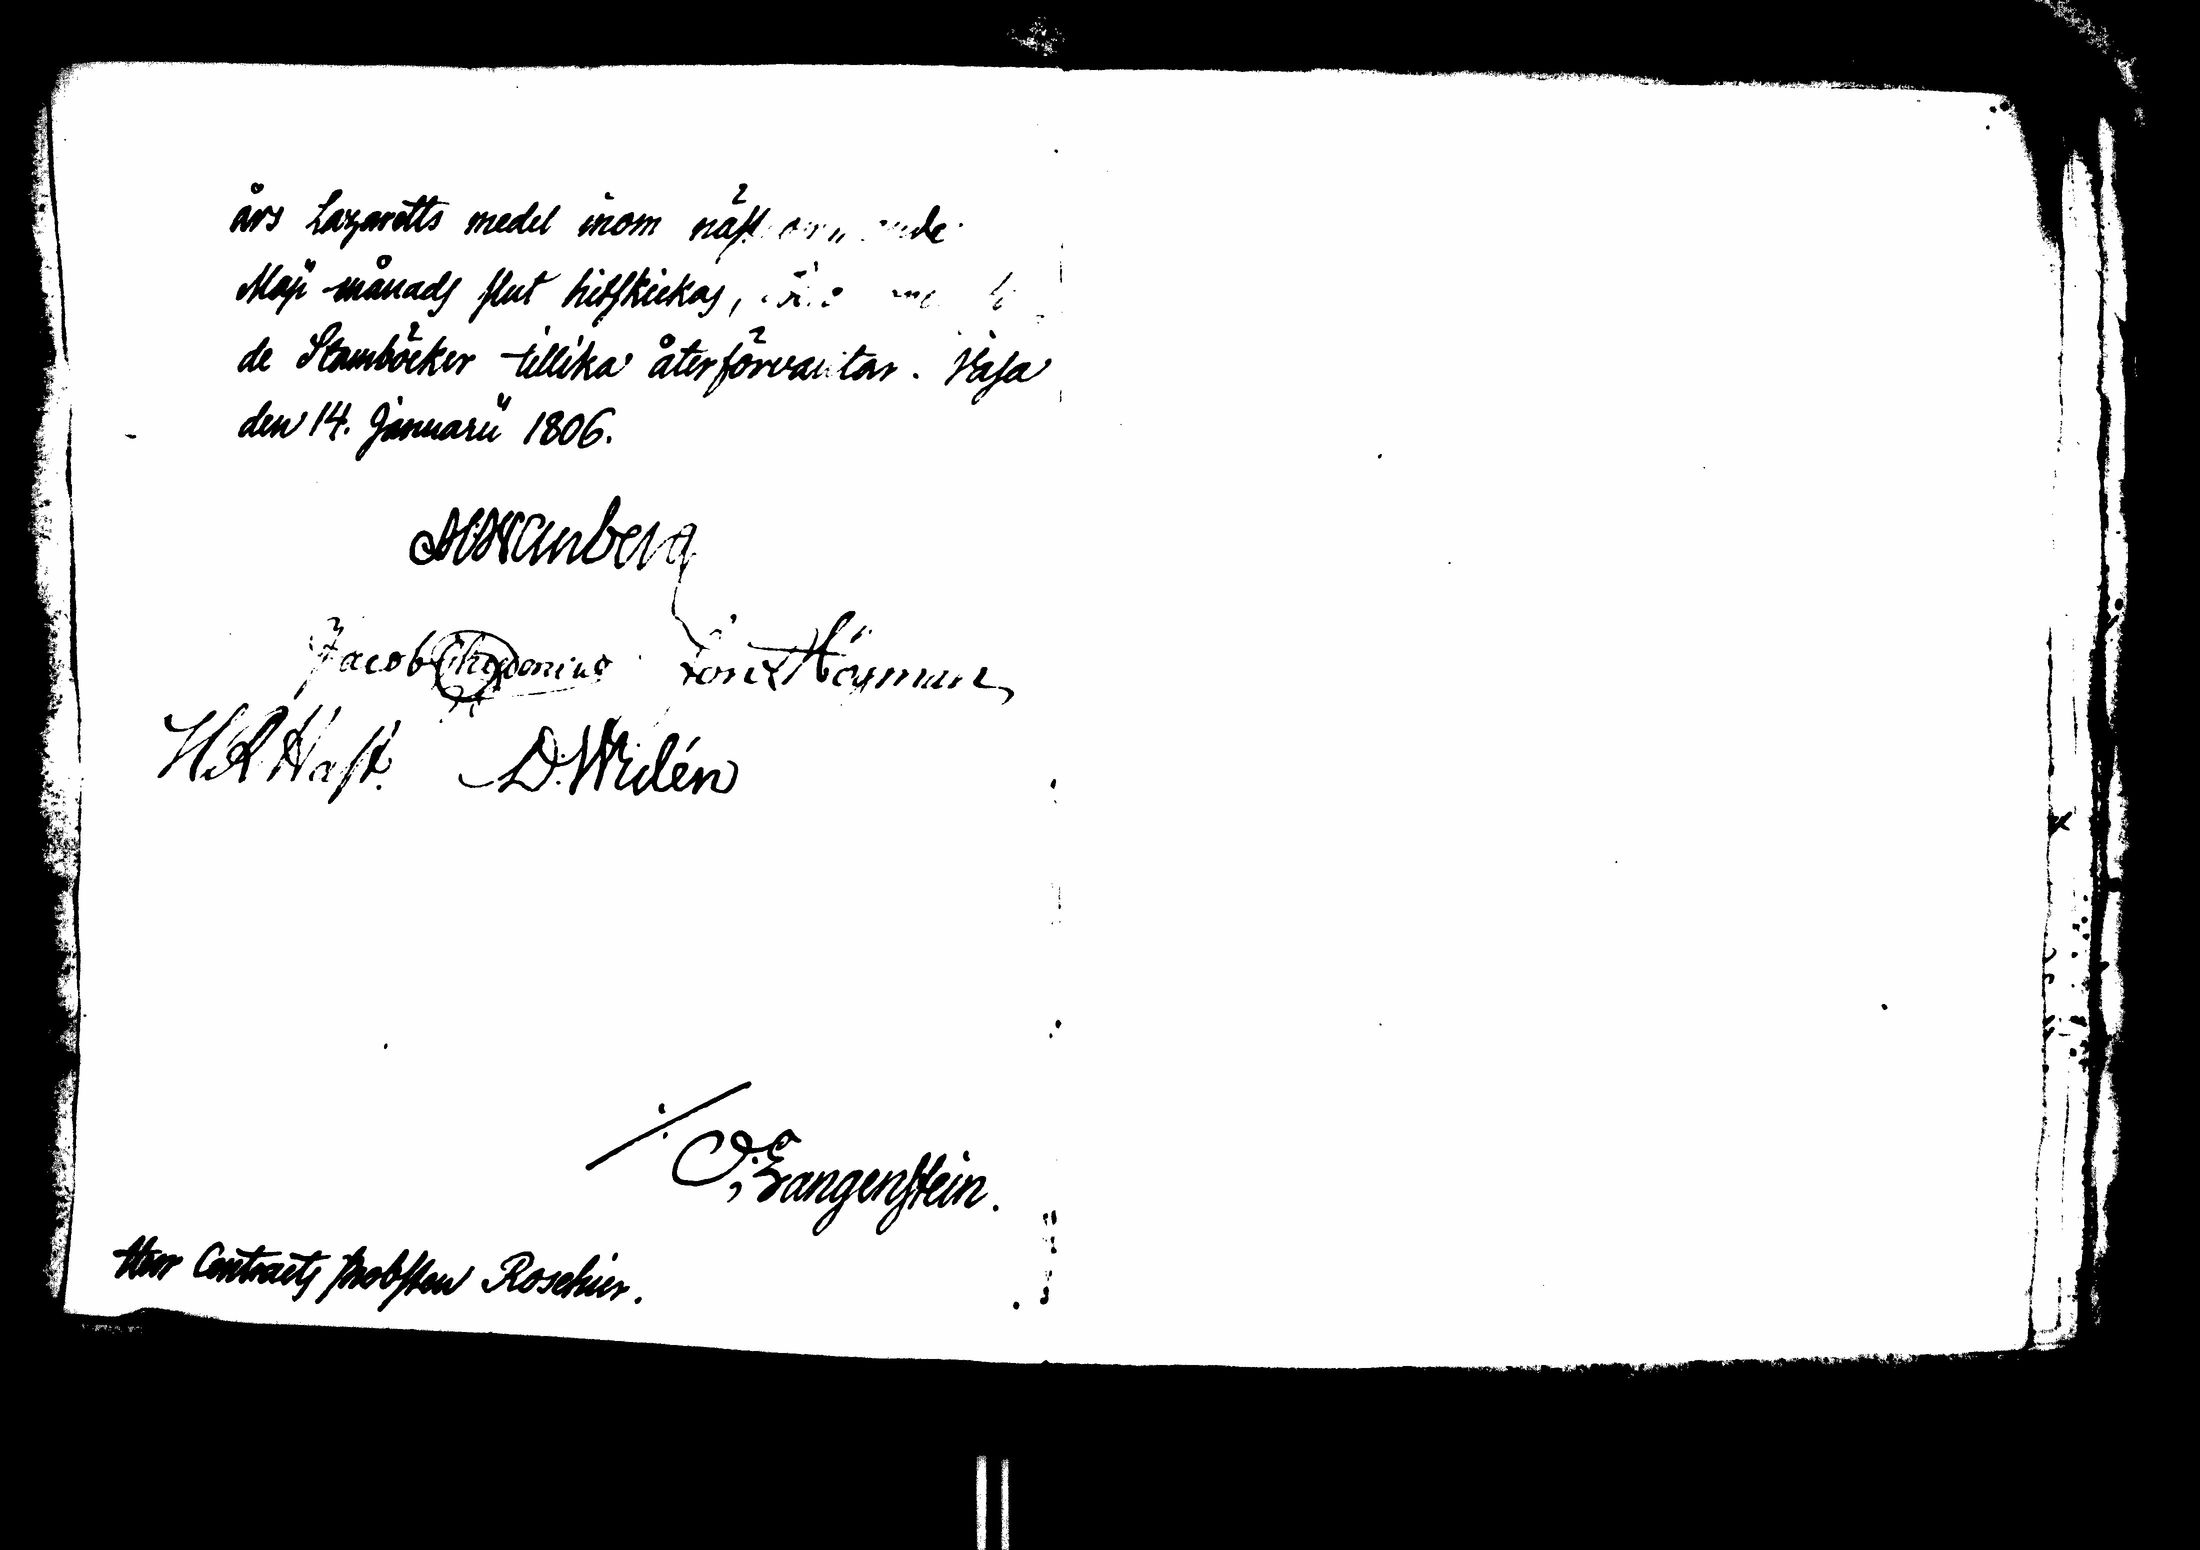 års Lazaretts medel inom näst
Maji månads slut hitskickas,
de Stamböcker tillika återförväntar. Vasa
den 14. Januarii 1806.
Jacob Chydenius
H. R. Hast. D. Widén
./. O. Langenstein.
Herr Contracts Probsten Roschier.